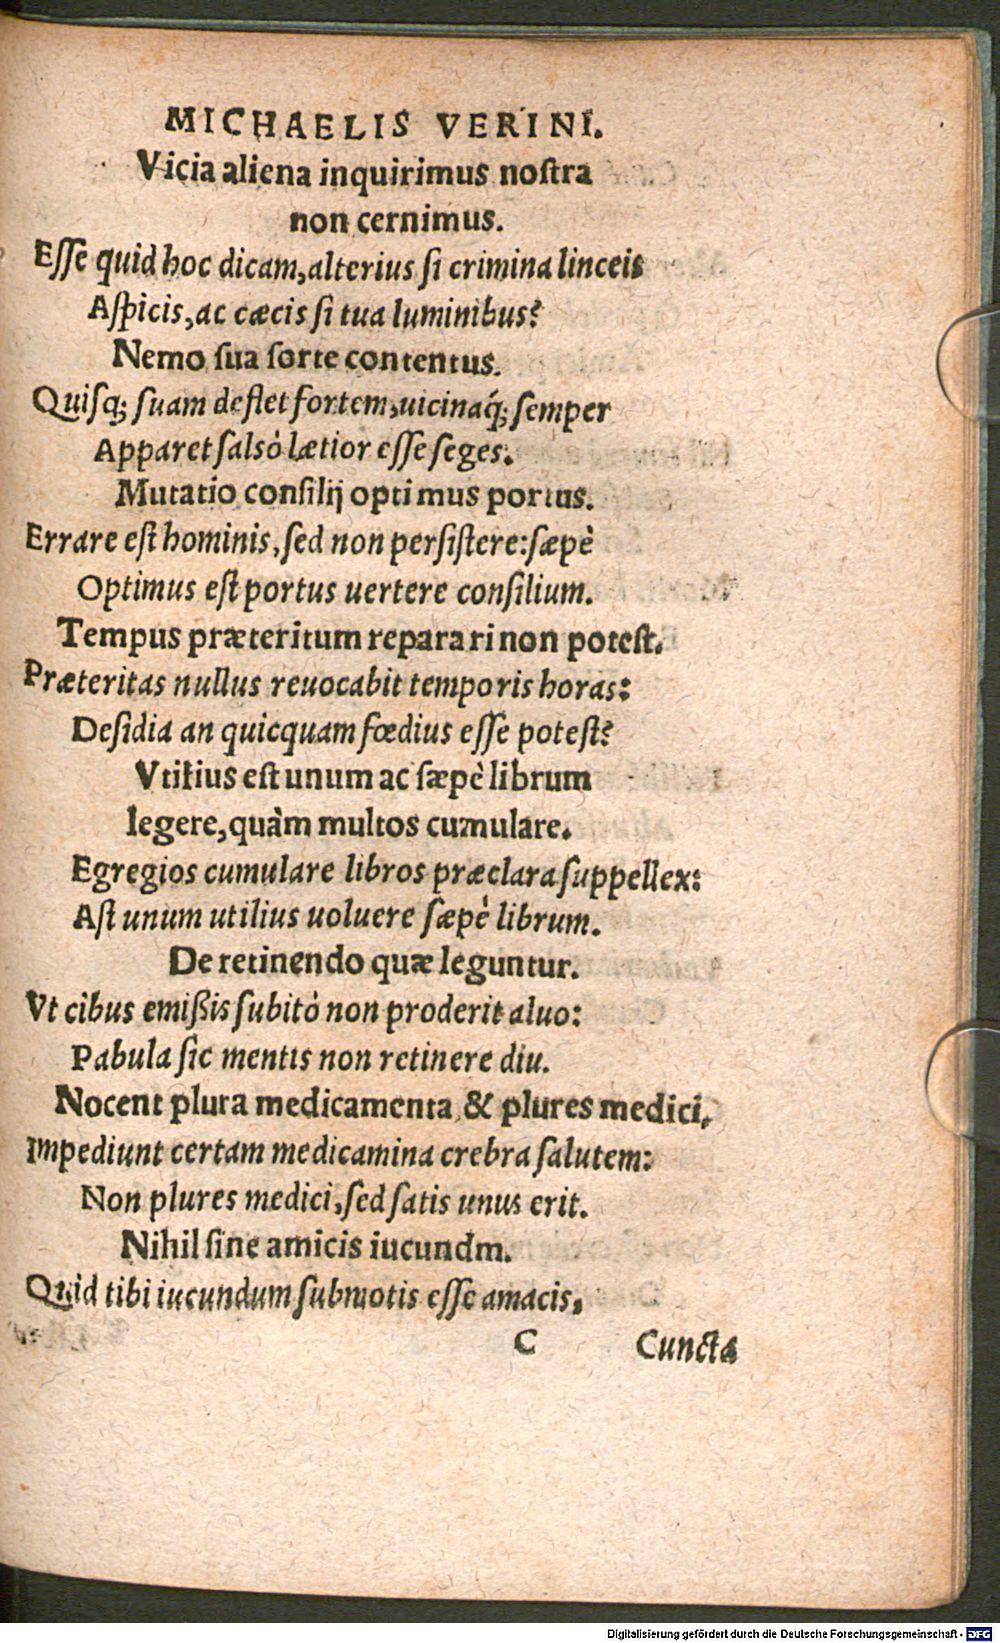 MICHAELIS VERINI.
Vicia aliena inquirimus noſtra
non cernimus.
Eſſe quid hoc dicam, alterius ſi crimina linceis
Aſpicis, ac cæcis ſi tua luminibus?
Nemo ſua ſorte contentus.
Quiſq; ſuam deflet ſortem, uicinaq́; ſemper
Apparet falsò lætior eſſe ſeges.
Mutatio conſilij optimus portus.
Errare eſt hominis, ſed non perſiſtere: ſæpè
Optimus eſt portus uertere conſilium.
Tempus præteritum reparari non poteſt.
Præteritas nullus reuocabit temporis horas:
Deſidia an quicquam fœdius eſſe poteſt?
Vtilius eſt unum ac ſæpè librum
legere, quàm multos cumulare.
Egregios cumulare libros præclara ſuppellex:
Aſt unum utilius uoluere ſæpè librum.
De retinendo quæ leguntur.
Vt cibus emißis ſubitò non proderit aluo:
Pabula ſic mentis non retinere diu.
Nocent plura medicamenta & plures medici.
Impediunt certam medicamina crebra ſalutem:
Non plures medici, ſed ſatis unus erit.
Nihil ſine amicis iucundm.
Quid tibi iucundum ſubmotis eſſe amacis,
C Cuncta
Digitalisierung gefördert durch die Deutsche Forschungsgemeinschaft - DFG